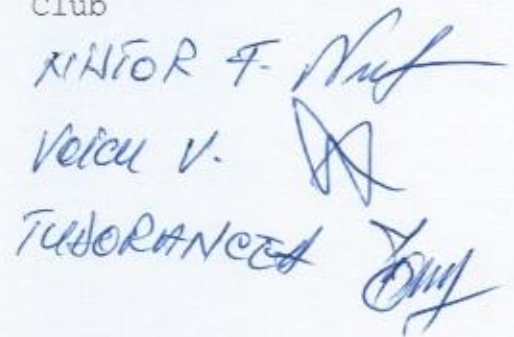 Club
NIHTOR F.
Voicu V.
TUDORANCEA